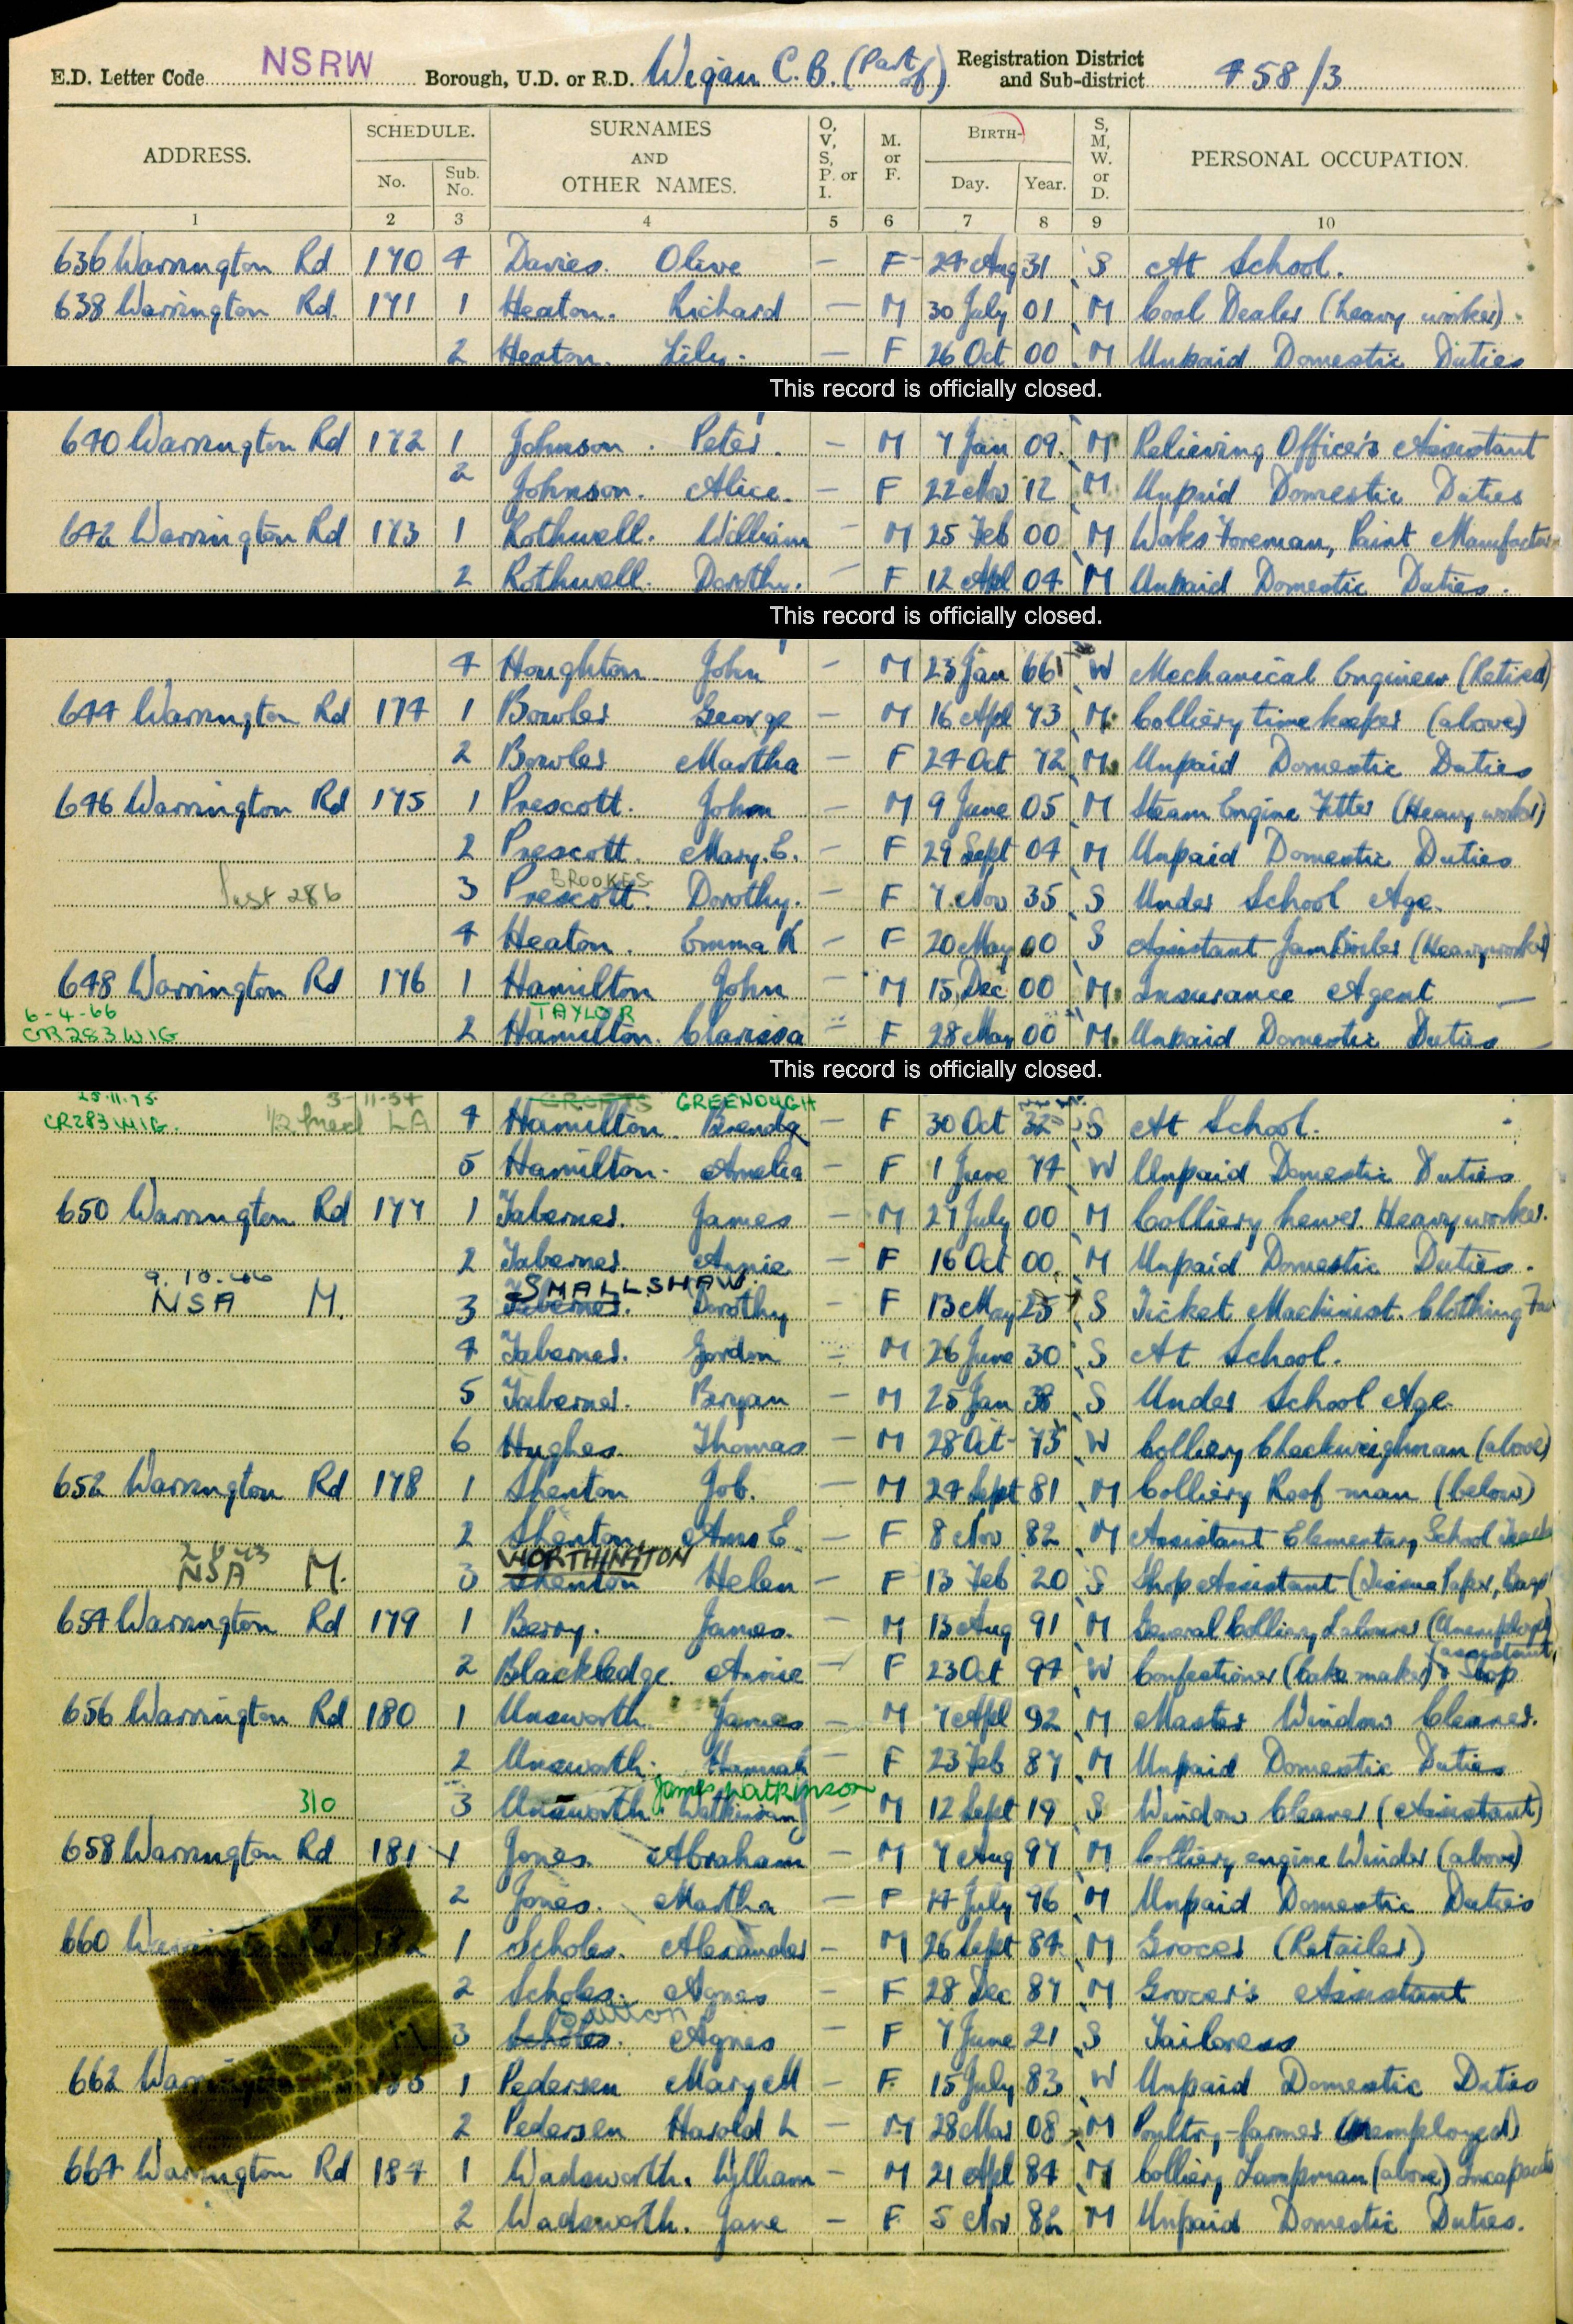 E.D. Letter Code NSRW Borough, U.D. or R.D. Wigan C.B. (Part of) Registration District and Sub-district 458/3
ADDRESS. SCHEDULE. No. Sub. No. SURNAMES AND OTHER NAMES. O, V, S, P. or I. M. or F. BIRTH- Day. Year. S, M, W. or D. PERSONAL OCCUPATION.
1 2 3 4 5 6 7 8 9 10
636 Warrington Rd 170 4 Davies. Olive — F 24 Aug 31 S At School.
638 Warrington Rd. 171 1 Heaton. Richard — M 30 July 01 M Coal Dealer (heavy worker).
2 Heaton. Lily. — F 26 Oct 00 M Unpaid Domestic Duties
This record is officially closed.
640 Warrington Rd 172 1 Johnson. Peter. — M 7 Jan 09. M Relieving Officer's Assistant
2 Johnson. Alice. — F 22 Nov 12 M Unpaid Domestic Duties
642 Warrington Rd 173 1 Rothwell. William — M 25 Feb 00 M Works Foreman, Paint
2 Rothwell. Dorothy. — F 12 Apl 04 M Unpaid Domestic Duties.
This record is officially closed.
4 Houghton John — M 23 Jan 66 W Mechanical Engineer (Retired)
644 Warrington Rd 174 1 Bowler George — M 16 Apl 73 M. Colliery timekeeper (above)
2 Bowler Martha — F 24 Oct 72 M. Unpaid Domestic Duties
646 Warrington Rd 175 1 Prescott. John — M 9 June 05 M Steam Engine Fitter (Heavy worker)
2 Prescott. Mary. E. — F 29 Sept 04 M Unpaid Domestic Duties
BROOKES
286 3 Prescott. Dorothy. — F 7 Nov 35 S Under School Age.
4 Heaton. Emma K — F 20 May 00 S Assistant Jam Boiler (Heavy worker)
648 Warrington Rd 176 1 Hamilton John — M 15 Dec 00 M. Insurance Agent —
6-4-66 TAYLOR
CR283 WIG 2 Hamilton. Clarissa — F 28 May 00 M. Unpaid Domestic Duties —
This record is officially closed.
25.11.75. 3-11-54 CROFTS GREENOUGH
CR283 WIG. LA 4 Hamilton. Brenda — F 30 Oct 32 S At School.
5 Hamilton. Amelia — F 1 June 74 W Unpaid Domestic Duties
650 Warrington Rd 177 1 Taberner. James — M 27 July 00 M Colliery hewer. Heavy worker.
2 Taberner. Annie — F 16 Oct 00. M Unpaid Domestic Duties.
9.10.46 SMALLSHAW.
NSA M. 3 Taberner. Dorothy — F 13 May 25 S Ticket Machinist. Clothing
4 Taberner. Gordon M 26 June 30 S At School.
5 Taberner. Bryan — M 25 Jan 38 S Under School Age.
6 Hughes. Thomas — M 28 Oct 75 W Colliery Checkweighman (above)
652 Warrington Rd 178 1 Shenton Job. — M 24 Sept 81 M Colliery Roof-man (below)
2 Shenton. E — F 8 Nov 82 M Assistant Elementary School
WORTHINGTON
NSA M. 3 Shenton Helen — F 13 Feb 20 S Shop Assistant (Tissue Paper,
654 Warrington Rd 179 1 Berry. James. — M 13 Aug 91 M General Colliery Labourer (Unemployed)
2 Blackledge. Annie — F 23 Oct 94 W Confectioner (Cake maker) & Shop (assistant)
656 Warrington Rd 180 1 Unsworth. James — M 7 Apl 92 M Master Window Cleaner.
2 Unsworth. Hannah — F 23 Feb 87 M Unpaid Domestic Duties
James Watkinson
310 3 Unsworth. Watkinson — M 12 Sept 19 S Window Cleaner (Assistant)
658 Warrington Rd 181 1 Jones. Abraham — M 7 Aug 97 M Colliery engine Winder (above)
2 Jones. Martha — F 14 July 96 M Unpaid Domestic Duties
660 1 Scholes. Alexander — M 26 Sept 84 M Grocer (Retailer)
2 Scholes. Agnes — F 28 Dec 87 M Grocer's Assistant
3 Scholes. Agnes — F 7 June 21 S Tailoress
662 1 Pedersen Mary M — F. 15 July 83 W Unpaid Domestic Duties
2 Pedersen Harold L — M 28 Mar 08 M Poultry-farmer (Unemployed)
664 Warrington Rd 184 1 Wadsworth. William — M 21 Apl 84 M Colliery Lampman (above)
2 Wadsworth. Jane — F 5 Nov 82 M Unpaid Domestic Duties.